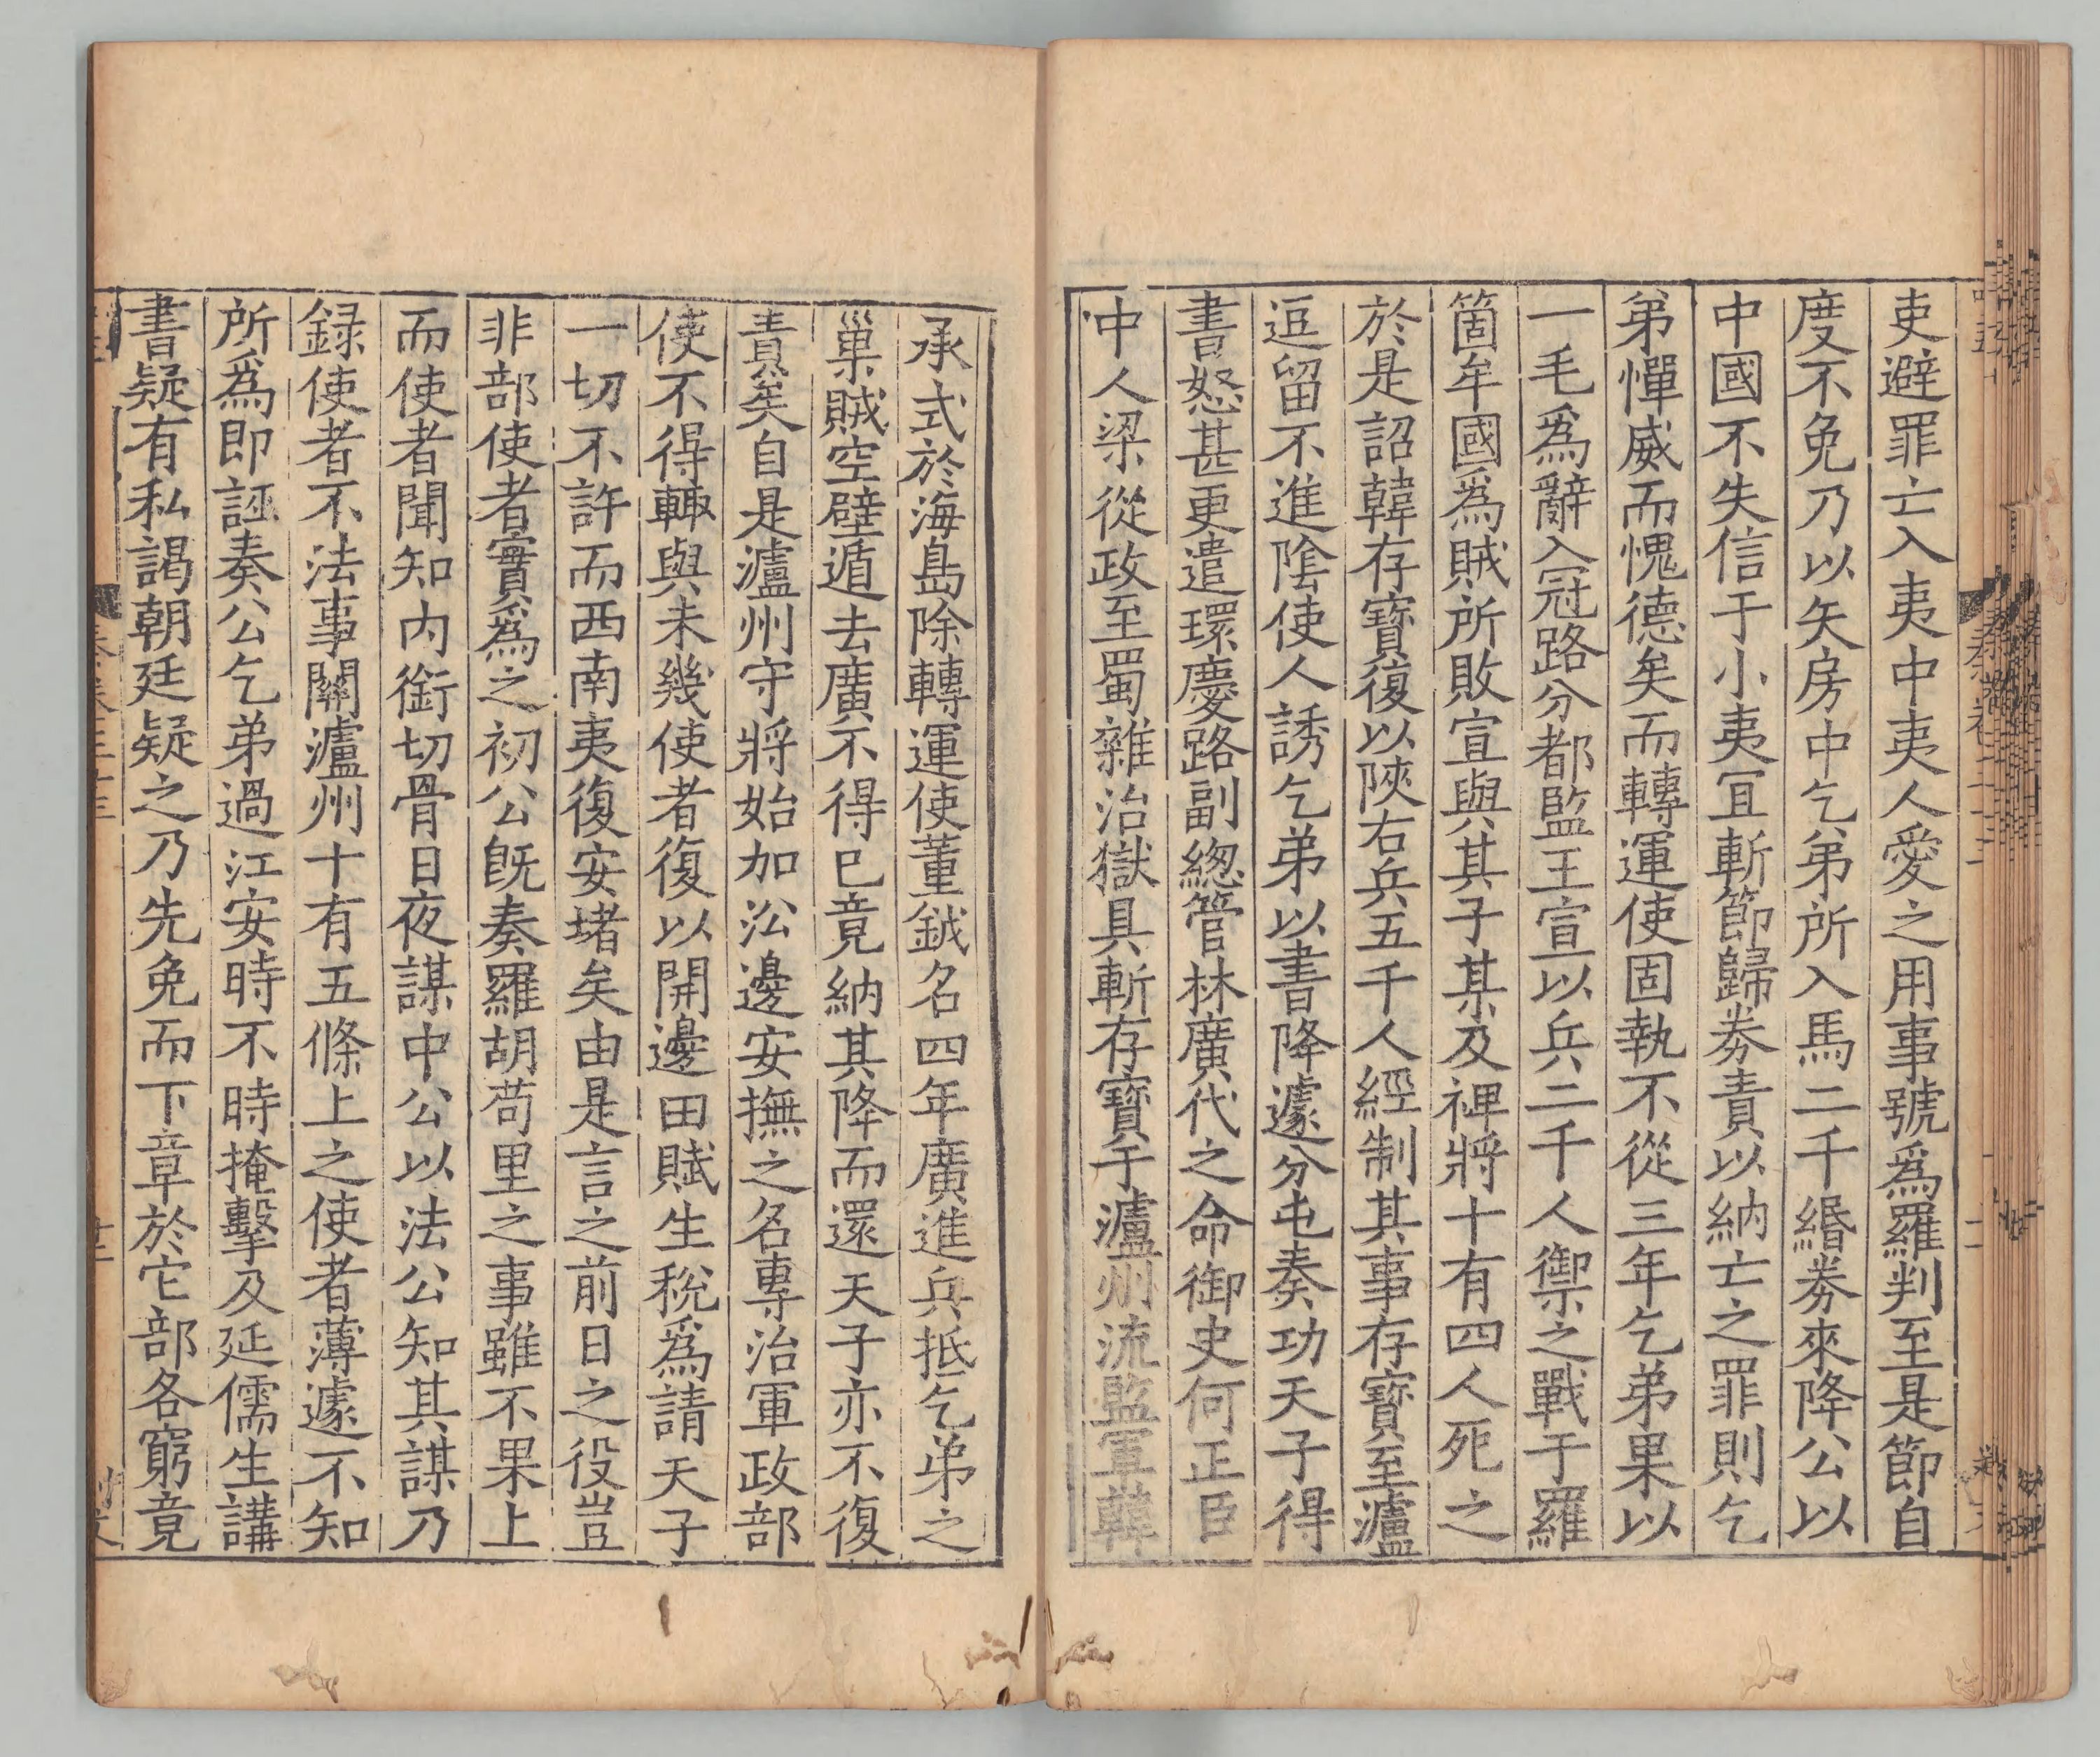 吏避罪亡入夷中夷人愛之用事號爲羅判至是節自
度不免乃以矢房中乞弟所入馬二千緡劵來降公以
中國不失信于小夷宜斬節歸劵責以納亡之罪則乞
弟憚威而愧德矣而轉運使固執不從三年乞弟果以
一毛爲辭入冦路分都監王宣以兵二千人禦之戰于羅
箇牟國爲賊所敗宣與其子某及裨將十有四人死之
於是詔韓存寳復以陝右兵五千人經制其事存寳至瀘
逗留不進陰使人誘乞弟以書降遽分屯奏功天子得
書怒甚更遣環慶路副緫管林廣代之命御史何正臣
中人梁從政至蜀雜治獄具斬存寳于瀘州流監軍韓
承式於海島除轉運使董鉞名四年廣進兵抵乞弟之
巢賊空壁遁去廣不得已竟納其降而還天子亦不復
責矣自是瀘州守將始加㳂邊安撫之名專治軍政部
使不得輙與未幾使者復以開邊田賦生稅爲請天子
一切不許而西南夷復安堵矣由是言之前日之役豈
非部使者實爲之初公旣奏羅胡苟里之事雖不果上
而使者聞知内銜切骨日夜謀中公以法公知其謀乃
録使者不法事關瀘州十有五條上之使者薄遽不知
所爲即誣奏公乞弟過江安時不時掩擊及延儒生講
書疑有私謁朝廷疑之乃先免而下章於它部各窮竟